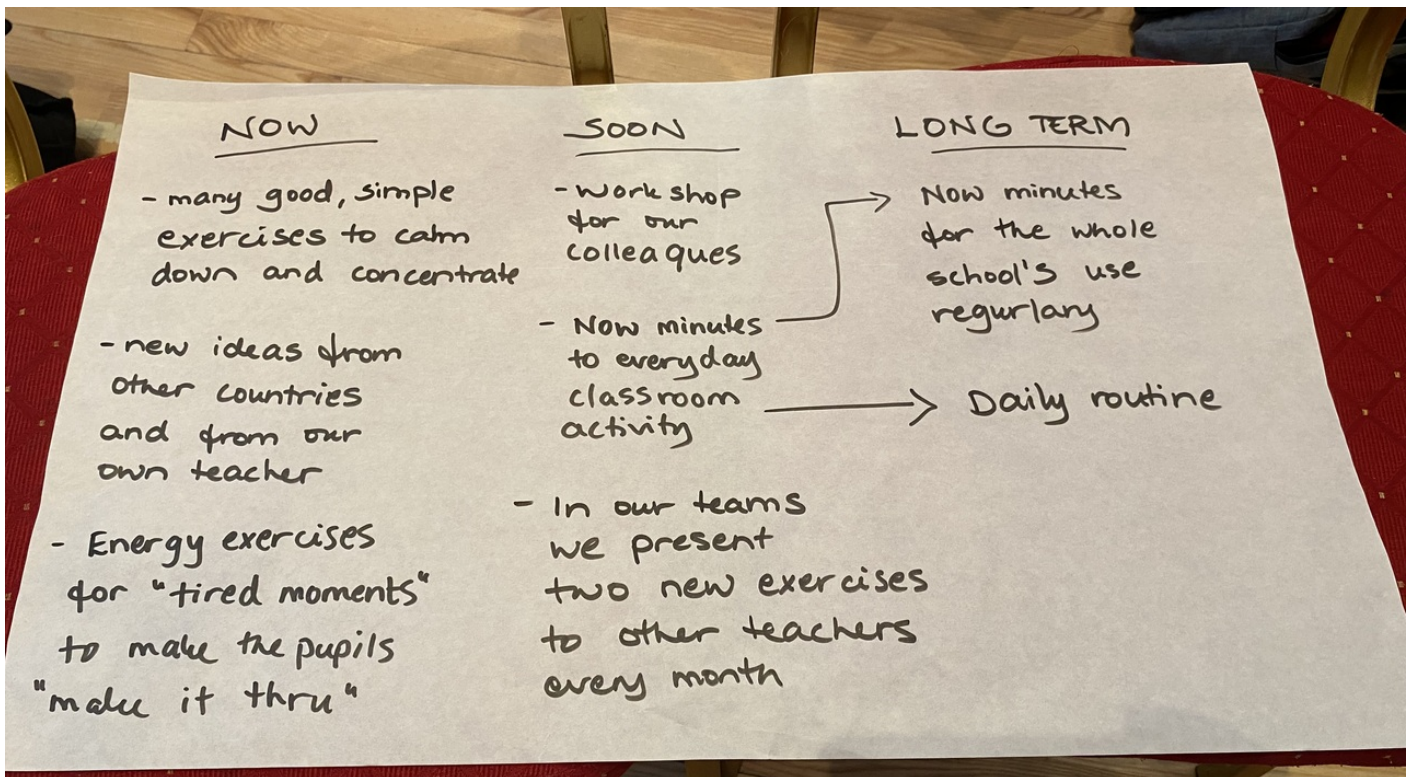 NOW
- many good, simple
exercises to calm
down and concentrate
- new ideas from
other countries
and from our
own teacher
- Energy exercises
for "tired moments"
to make the pupils
"make it thru"
SOON
- work shop
for our
colleaques
- Now minutes
to everyday
classroom
activity
- In our teams
we present
two new exercises
to other teachers
every month
LONG TERM
Now minutes
for the whole
school's use
regurlary
Daily routine